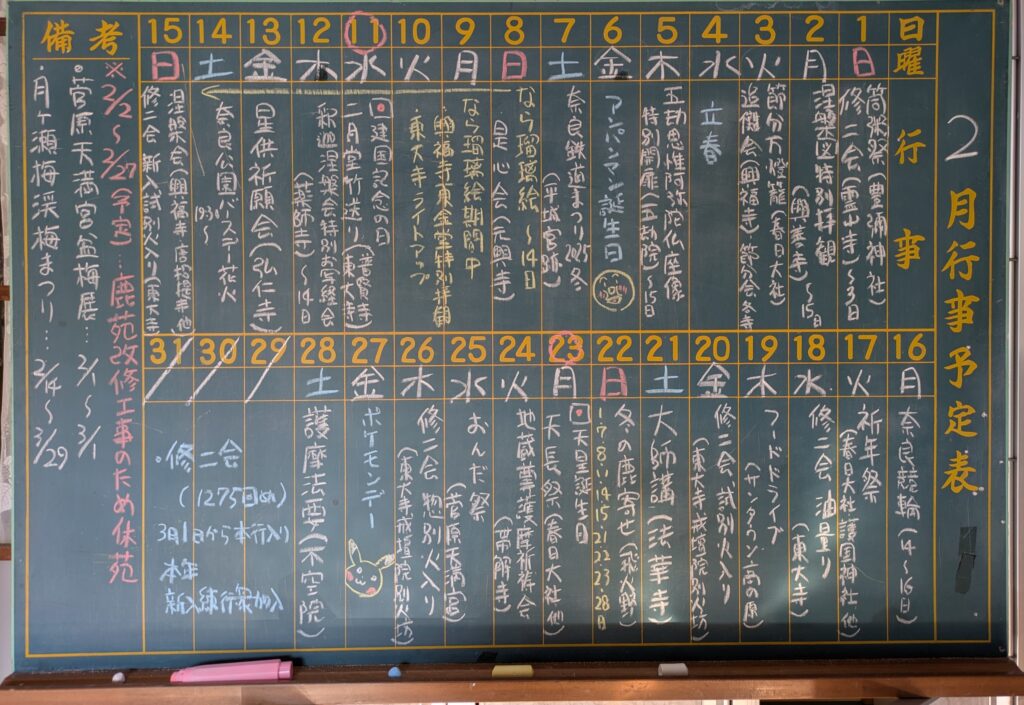 2月行事予定表
日
曜
行事
1
日
筒粥祭(登彌神社)
修二会(霊山寺)〜3日
2
月
涅槃図特別拝観
(興善寺)〜15日
3
火
節分万燈籠(春日大社)
追儺会(興福寺)節分会各寺
4
水
立春
5
木
五劫思惟阿弥陀仏座像
特別開扉(五劫院)〜15日
6
金
アンパンマン誕生日
7
土
奈良鉄道まつり2025冬
(平城宮跡)
8
日
なら瑠璃絵〜14日
星心会(元興寺)
9
月
なら瑠璃絵期間中
・興福寺東金堂特別拝観
10
火
・東大寺ライトアップ
11
水
建国記念の日
二月堂竹送り(音賢寺
東大寺)
12
木
釈迦涅槃会特別お写経会
(薬師寺)〜14日
13
金
星供祈願会(弘仁寺)
14
土
奈良公園バースデー花火
19:30〜
15
日
涅槃会(興福寺・唐招提寺他
修二会新入試別火入り(東大寺
16
月
奈良競輪(14〜16日)
17
火
祈年祭
(春日大社護国神社他)
18
水
修二会油量り
(東大寺)
19
木
フードドライブ
(サンタウン高の原)
20
金
修二会試別火入り
(東大寺戒壇院別火坊)
21
土
大師講(法華寺)
22
日
冬の鹿寄せ(飛火野)
1・7・8・11・14・15・21・22・23・28日
23
月
天皇誕生日
天長祭(春日大社他)
24
火
地蔵尊護摩祈祷会
(帯解寺)
25
水
おんだ祭
(菅原天満宮)
26
木
修二会惣別火入り
(東大寺戒壇院別火坊)
27
金
ポケモンデー
28
土
護摩法要(不空院)
29
30
31
・修二会
(1275回め)
3月1日から本行入り
本年
新入練行衆加入
備考
※2/2〜2/27(予定)…鹿苑改修工事のため休苑
・菅原天満宮盆梅展…2/1〜3/1
・月ヶ瀬梅渓梅まつり…2/14〜3/29